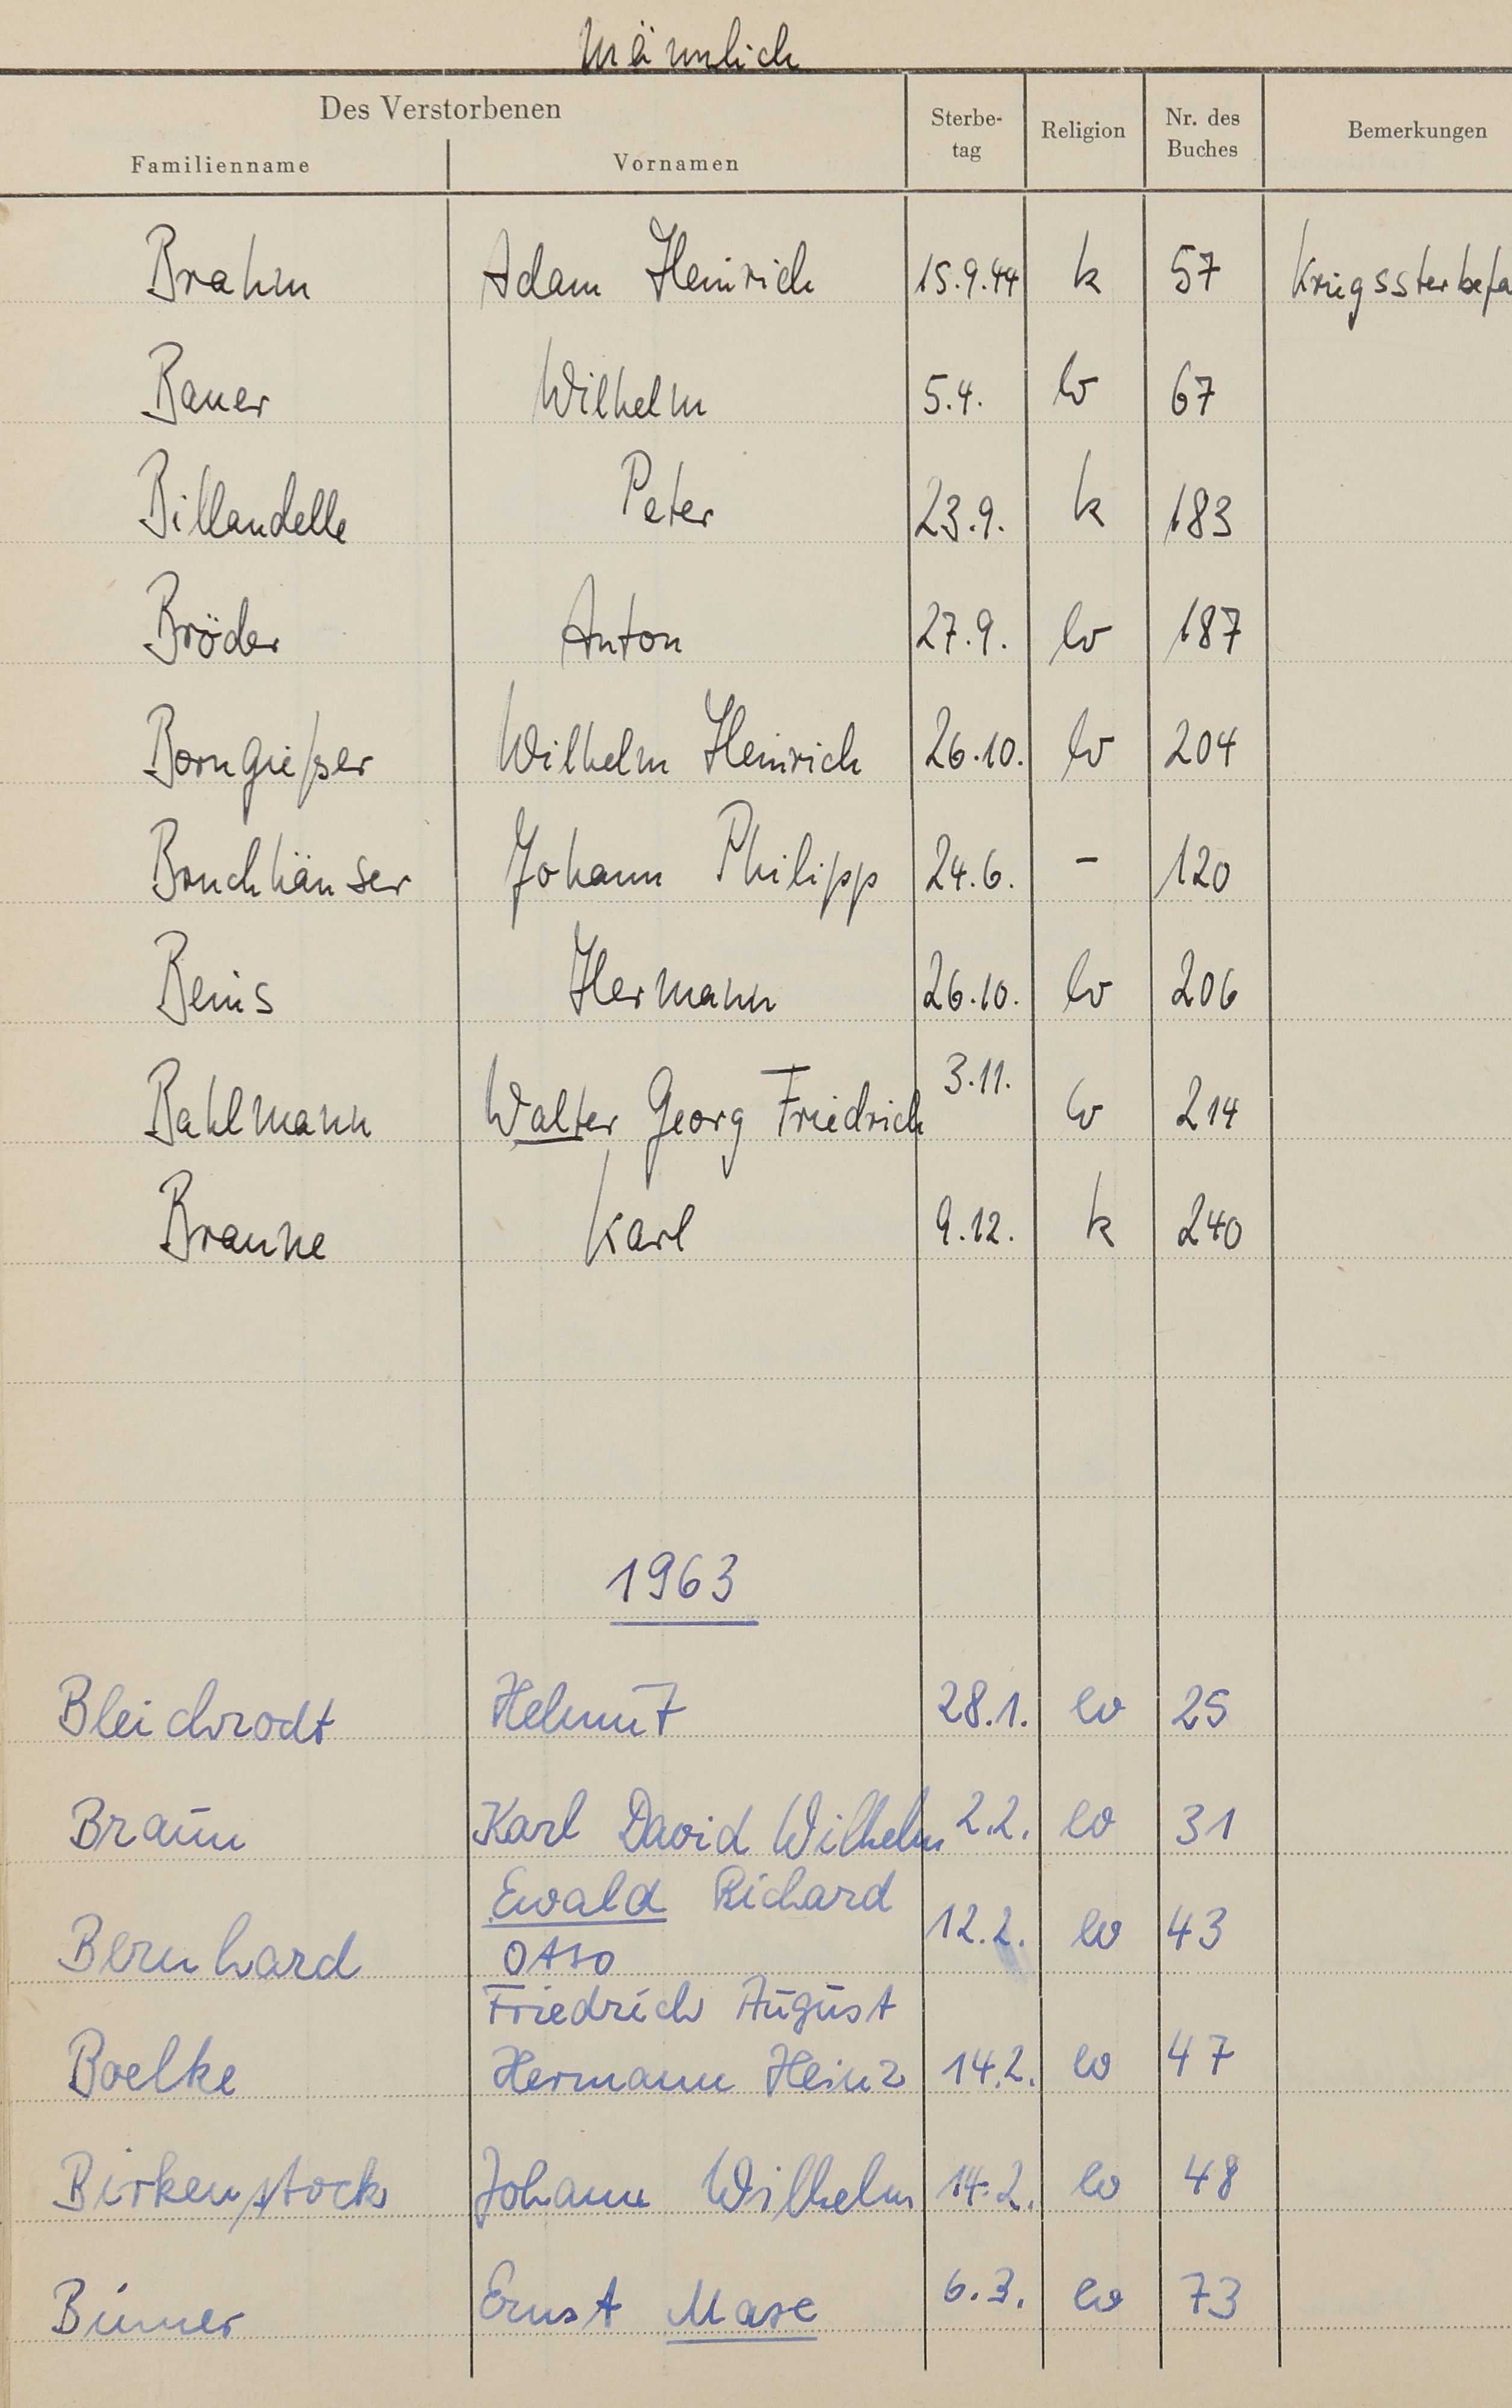 männlich
Des Verstorbenen
Familienname Vornamen Sterbe-tag Religion Nr. des Buches Bemerkungen
Brahm Adam Heinrich 15.9.44 k 57 Kriegssterbefa
Bauer Wilhelm 5.4. ev 67
Billaudelle Peter 23.9. k 183
Bröder Anton 27.9. ev 187
Borngießer Wilhelm Heinrich 26.10. ev 204
Bruchhäuser Johann Philipp 24.6. - 120
Beins Hermann 26.10. ev 206
Bahlmann Walter Georg Friedrich 3.11. ev 214
Braune Karl 9.12. k 240
1963
Bleichrodt Helmut 28.1. ev 25
Braun Karl David Wilhelm 2.2. ev 31
Ewald Richard
Bernhard Otto 12.2. ev 43
Friedrich August
Boelke Hermann Heinz 14.2. ev 47
Birkenstock Johann Wilhelm 14.2. ev 48
Ernst 6.3. ev 73